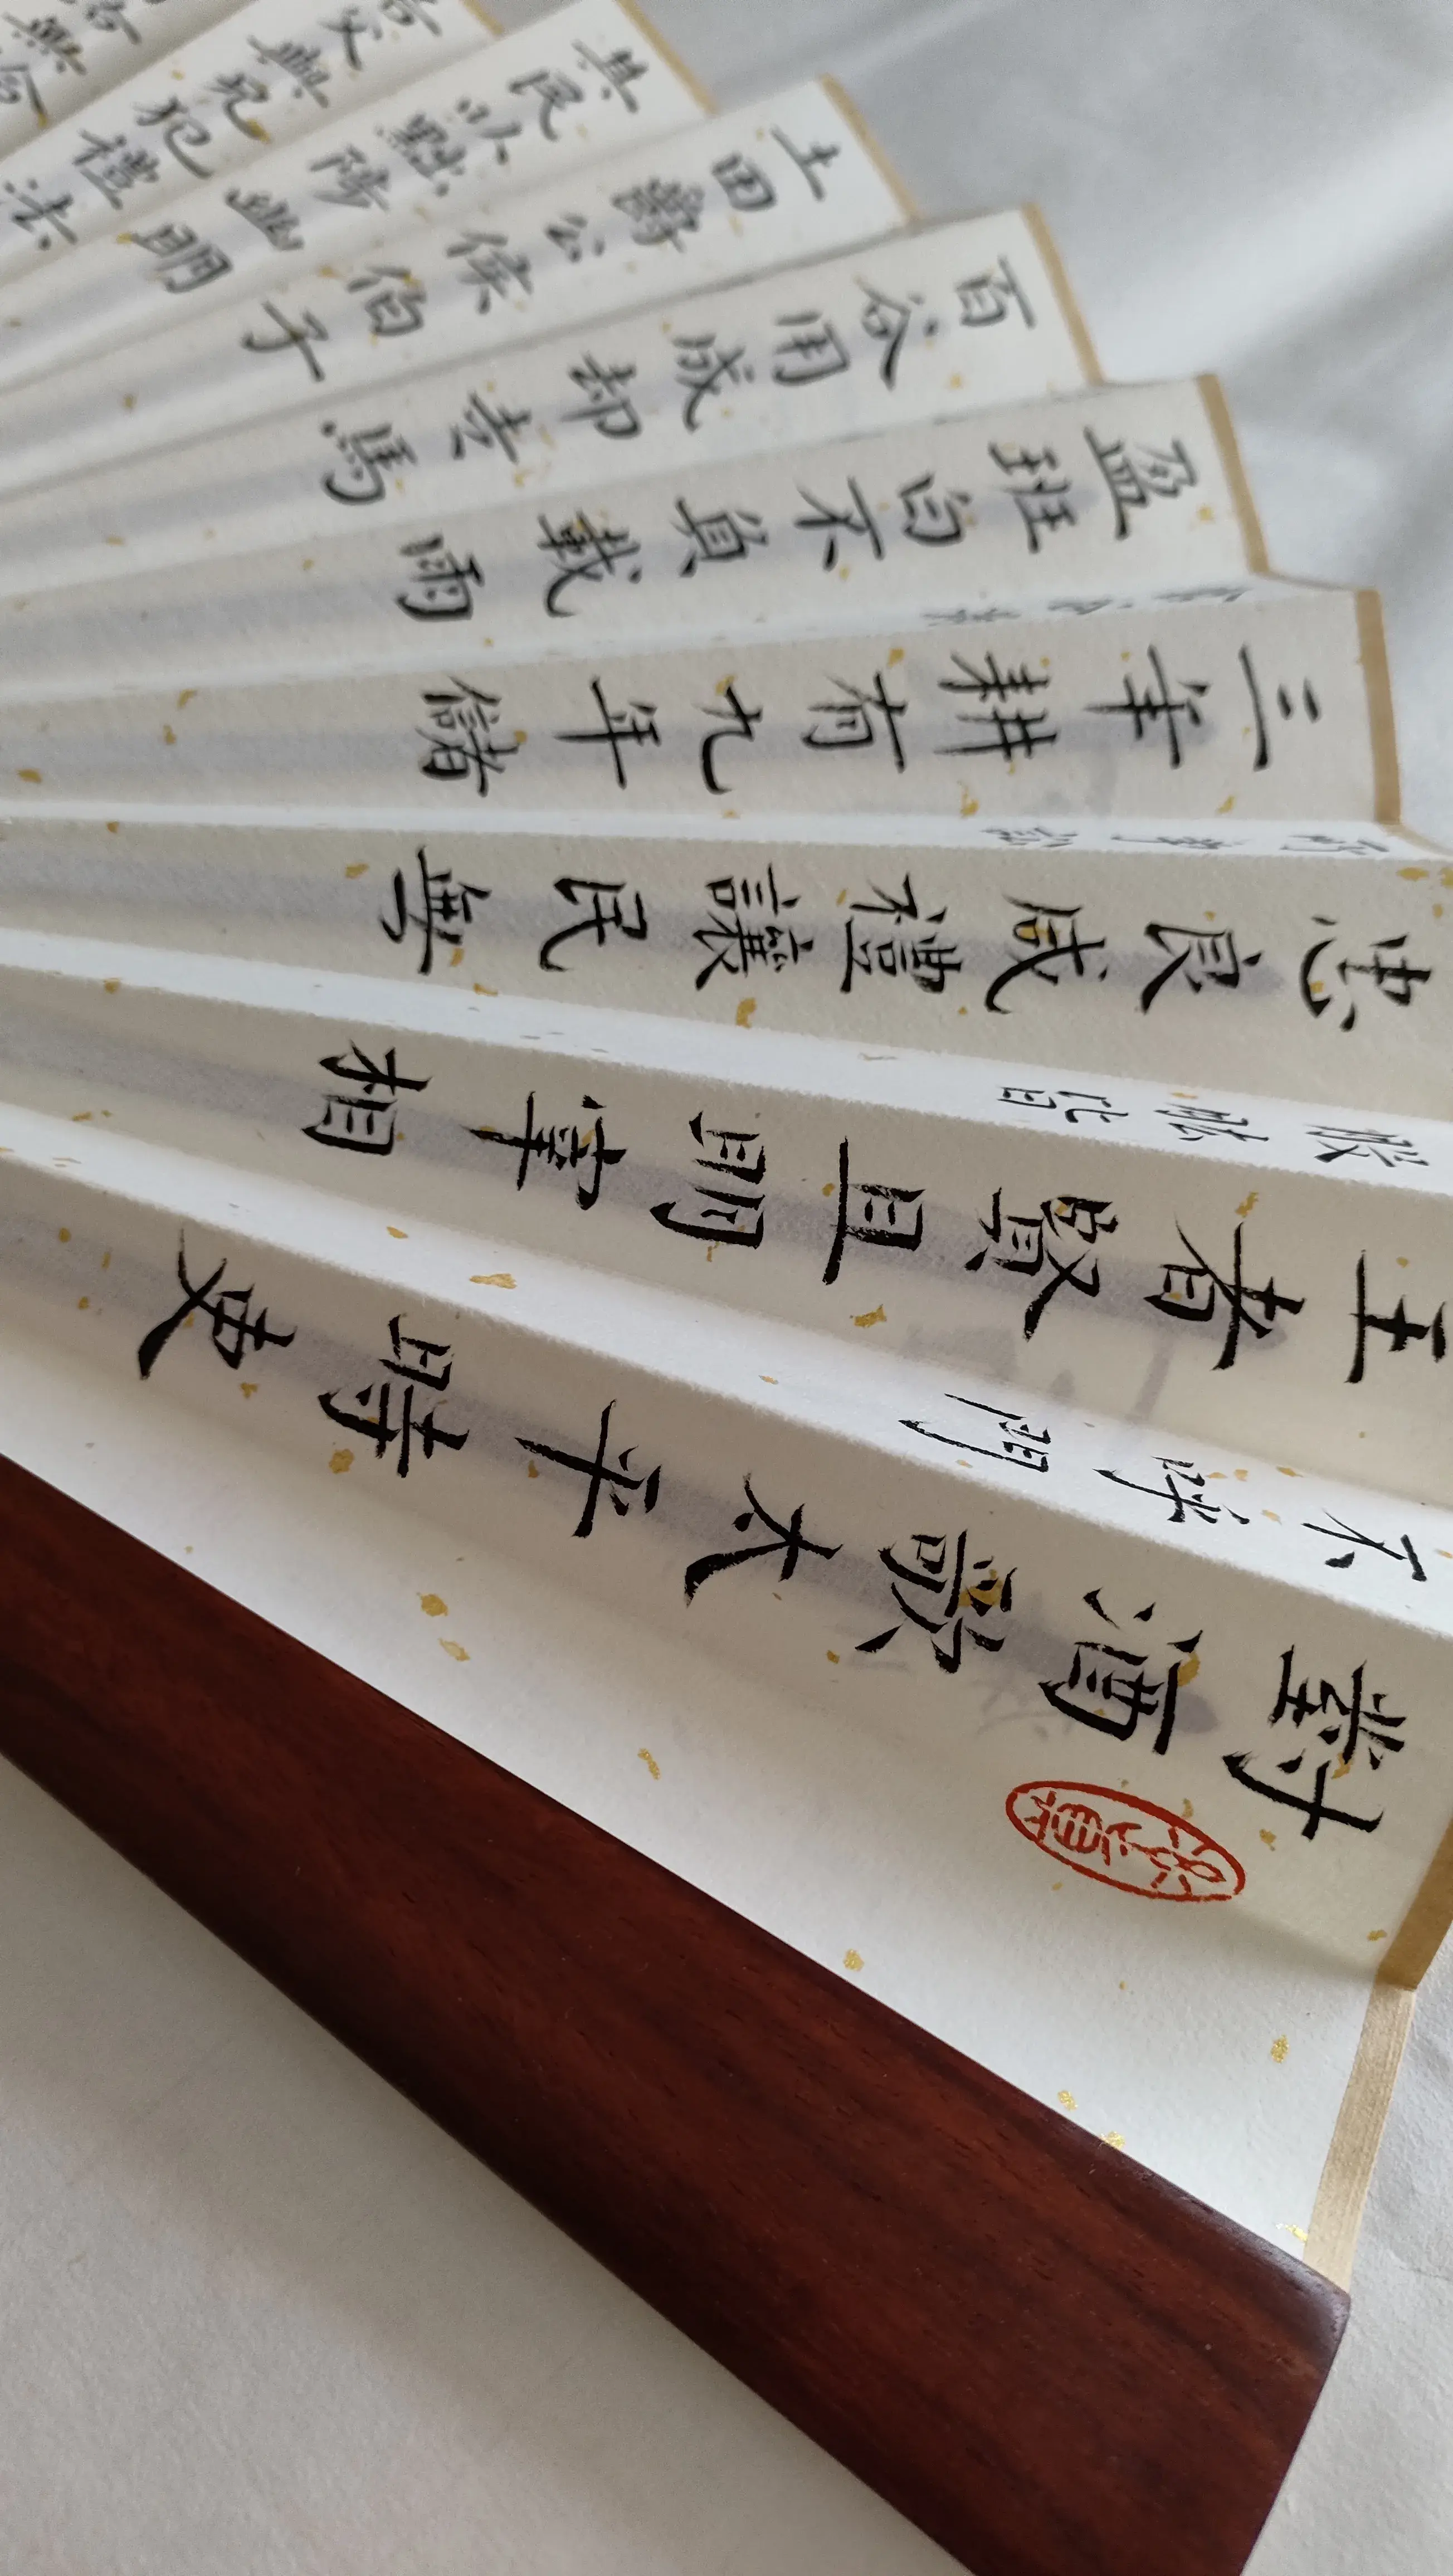 對酒歌太平時吏
不呼門
王者賢且明宰相
股肱皆
忠良咸禮讓民無
所爭訟
三年耕有九年儲
盈班白不負載雨
百谷用成却走馬
土田爵公侯伯子
其民以黜陟幽明
若父與兄犯禮法
路無拾